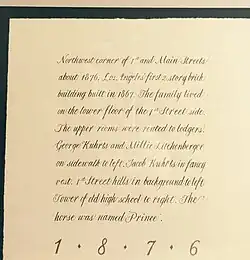 Northwest corner of 1st and Main Streets
about 1876. Los Angeles' first 2 story brick
building built in 1867. The family lived
on the lower floor of the 1st Street side.
The upper rooms were rented to lodgers.
George Kuhrts and Millie Lichenberger
on sidewalk to left, Jacob Kuhrts in fancy
vest. 1st Street hills in background to left
Tower of old high school to right. The
horse was named Prince.
1 · 8 · 7 · 6